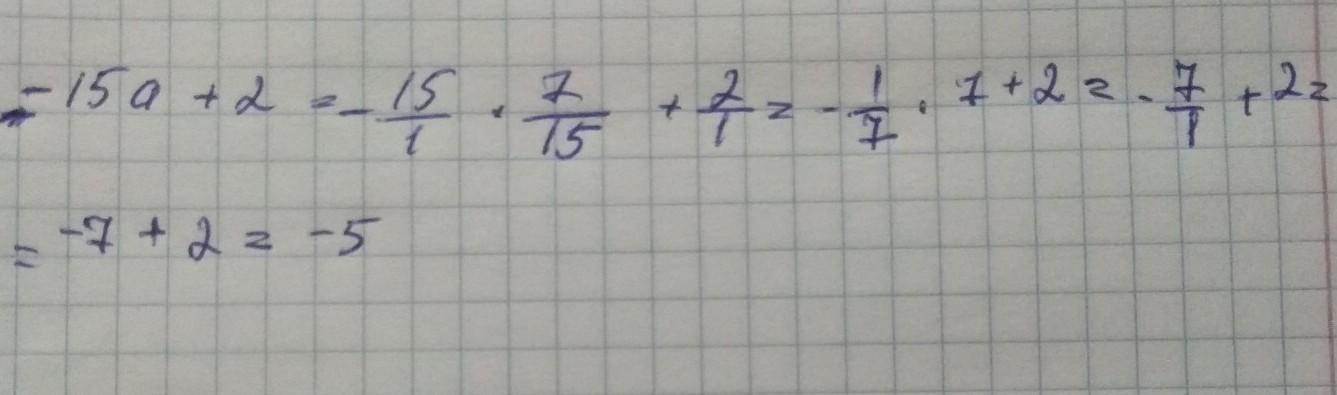 -15a + 2 = -15/1 · 7/15 + 2/1 = -1/7 · 7 + 2 = -7/1 + 2 =
= -7 + 2 = -5